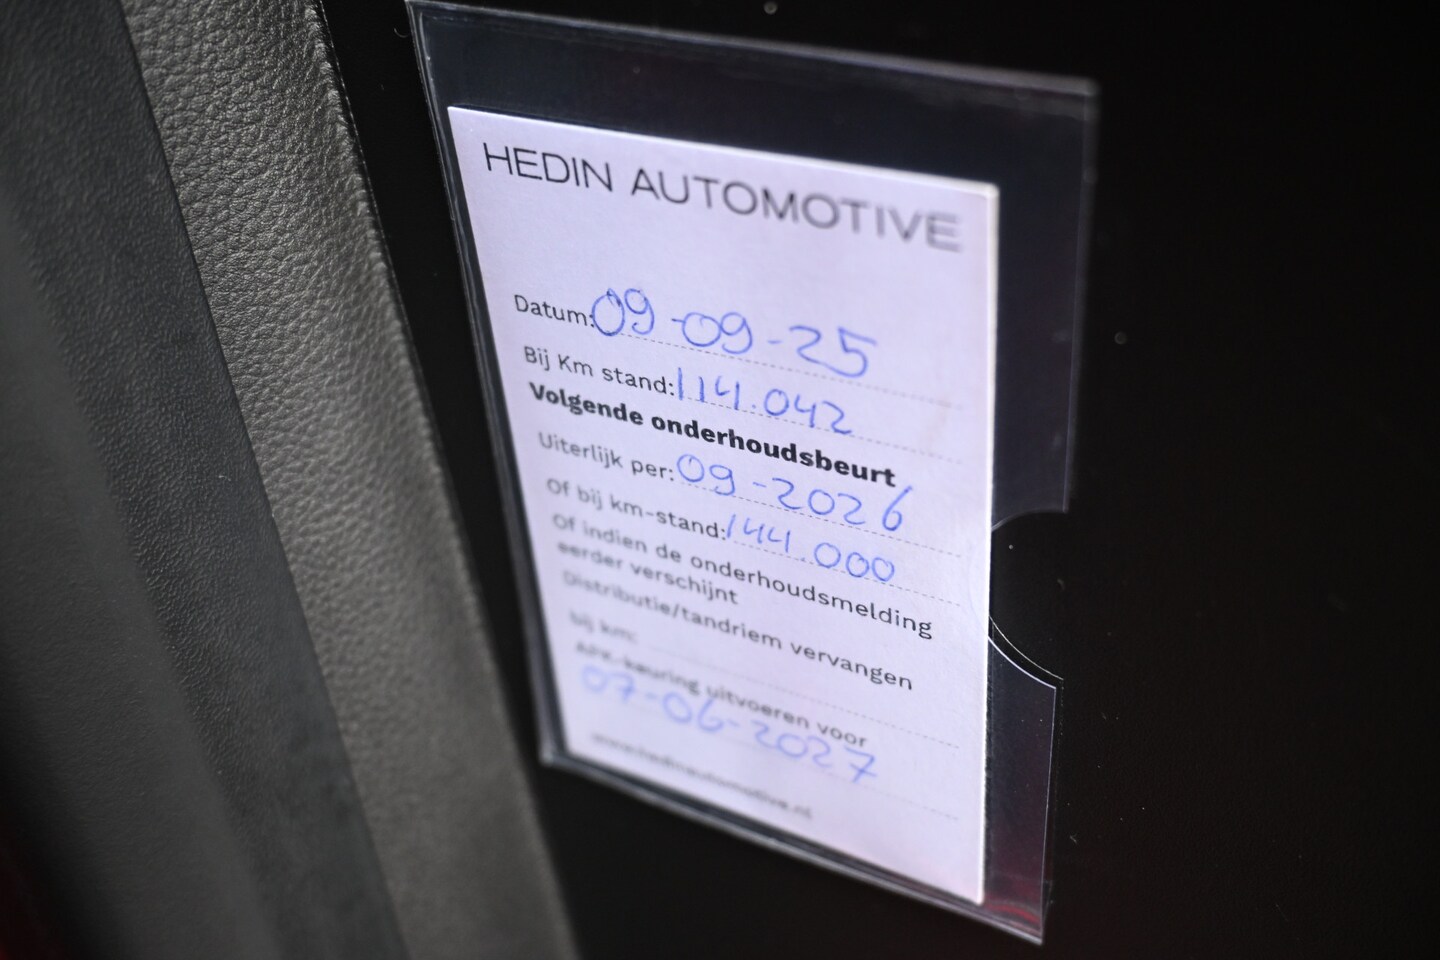 HEDIN AUTOMOTIVE
Datum: 09-09-25
Bij Km stand: 114.042
Volgende onderhoudsbeurt
Uiterlijk per: 09-2026
Of bij km-stand: 144.000
Of indien de onderhoudsmelding
eerder verschijnt
Distributie/tandriem vervangen
bij km:
APK-keuring uitvoeren voor
07-06-2027
www.hedinautomotive.nl